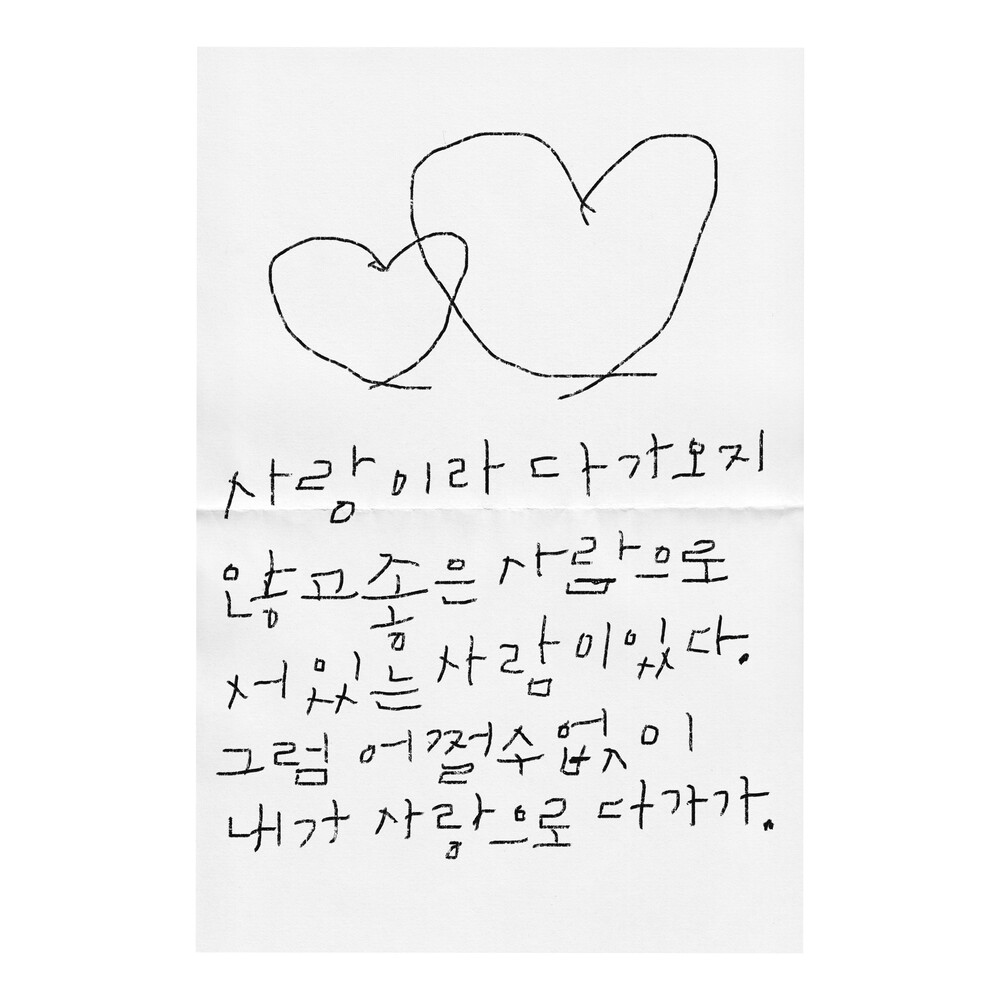 사랑이라 다가오지
않고 좋은 사람으로
서있는 사람이 있다.
그럼 어쩔수없이
내가 사랑으로 다가가.